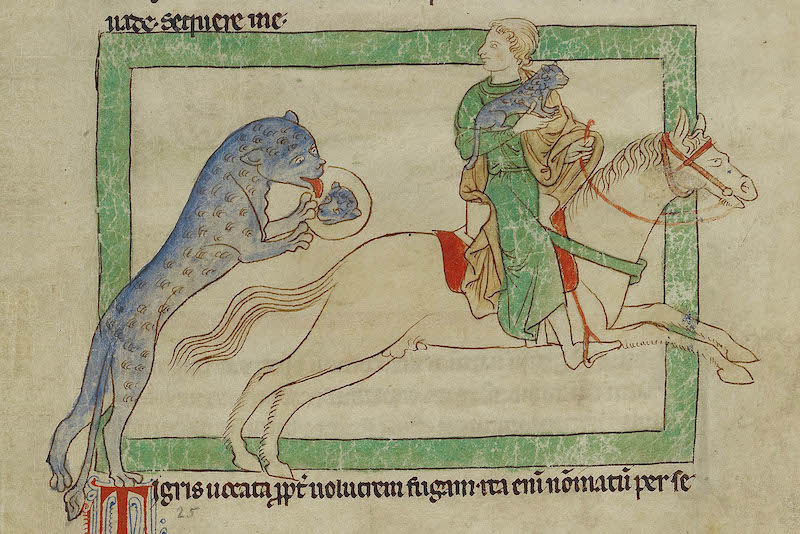 uade· sequere me·
Tigris uocata ꝓpt̄ uolucrem fugam·ita em̅ no̅matu̅ per se
25